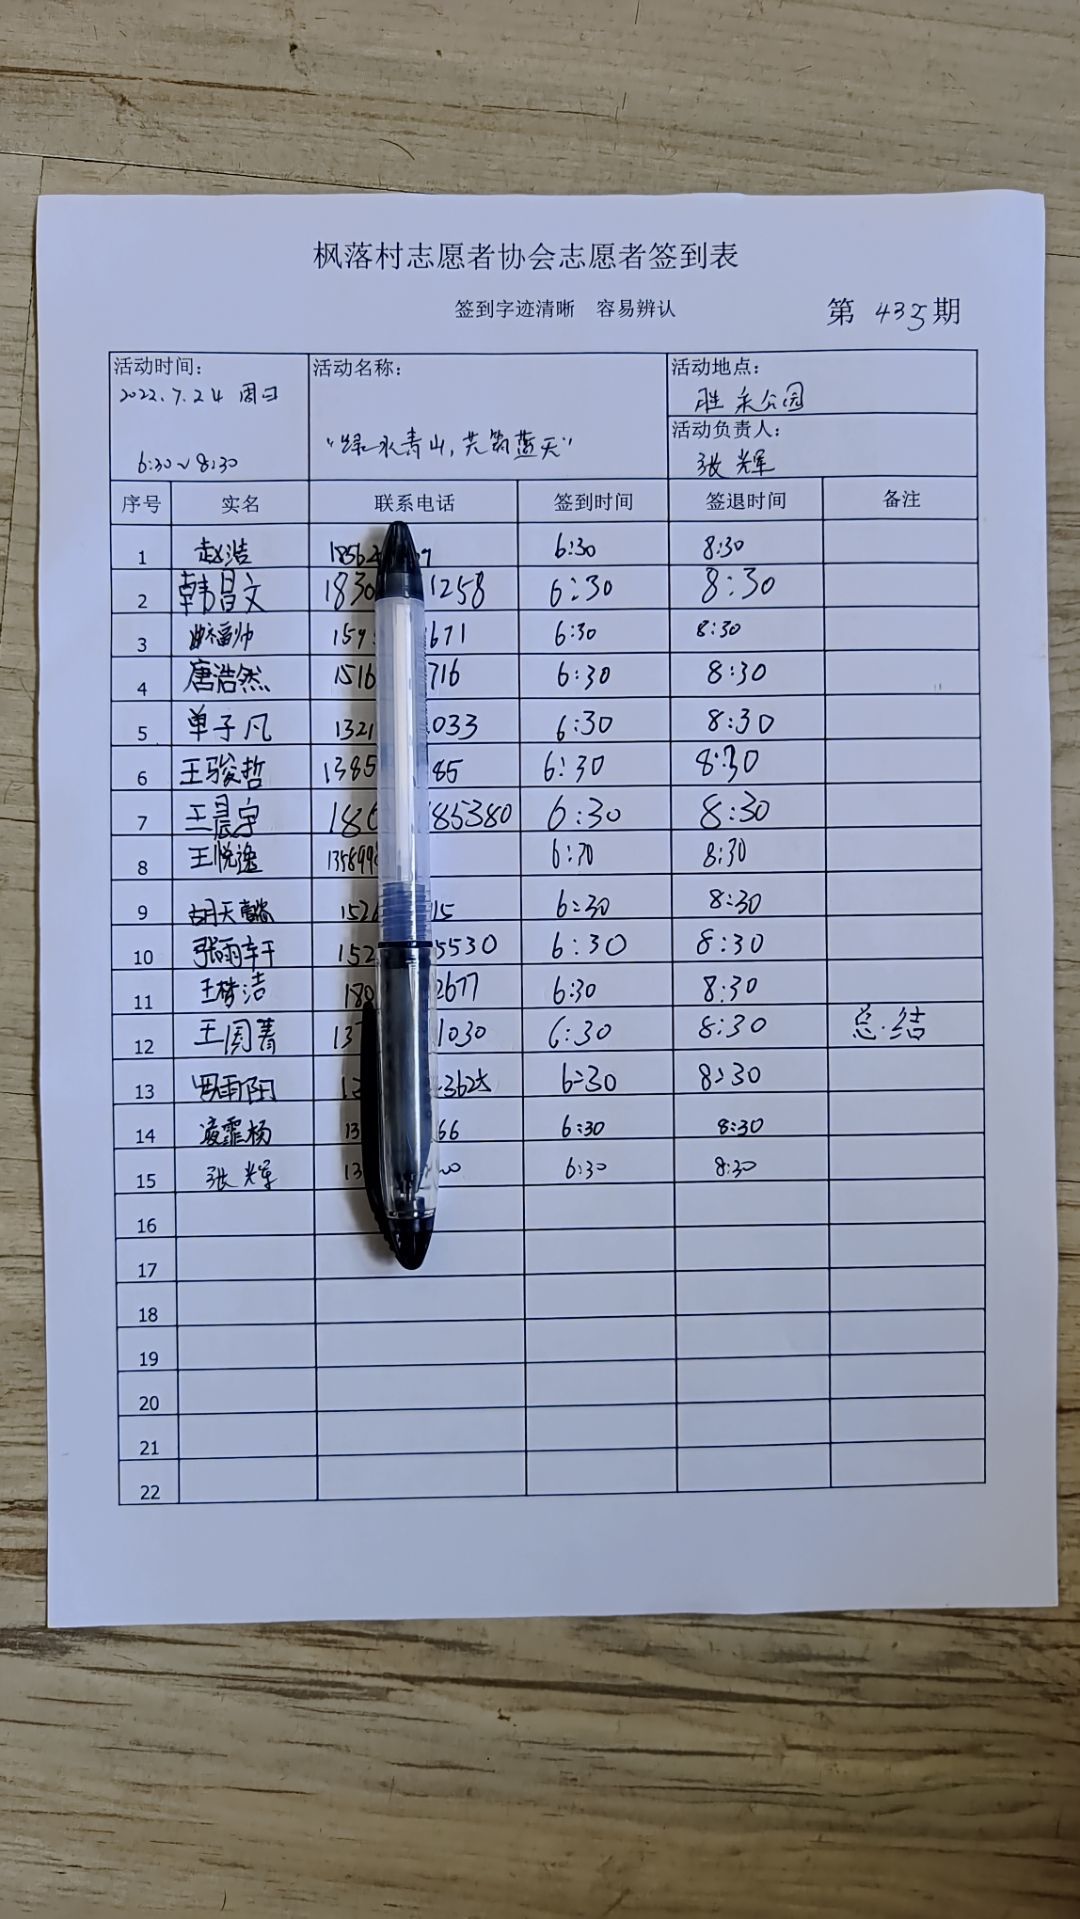 枫落村志愿者协会志愿者签到表
签到字迹清晰 容易辨认 第 435 期
活动时间: 活动名称: 活动地点:
2022.7.24 周日 胜采公园
活动负责人:
6:30~8:30 "绿水青山,共筑蓝天" 张辉
序号 实名 联系电话 签到时间 签退时间 备注
1 赵浩 6:30 8:30
2 韩昌文 1830 1258 6:30 8:30
3 曲福帅 159 671 6:30 8:30
4 唐浩然 1516 716 6:30 8:30
5 单子凡 1321 033 6:30 8:30
6 王骏哲 1385 85 6:30 8:30
7 王晨宇 180 85380 6:30 8:30
8 王悦逸 135899 6:30 8:30
9 胡天 152 15 6:30 8:30
10 张雨轩 152 5530 6:30 8:30
11 王梦洁 180 2677 6:30 8:30
12 王国菁 137 1030 6:30 8:30 总结
13 6:30 8:30
14 凌霏杨 13 66 6:30 8:30
15 张辉 13 6:30 8:30
16
17
18
19
20
21
22